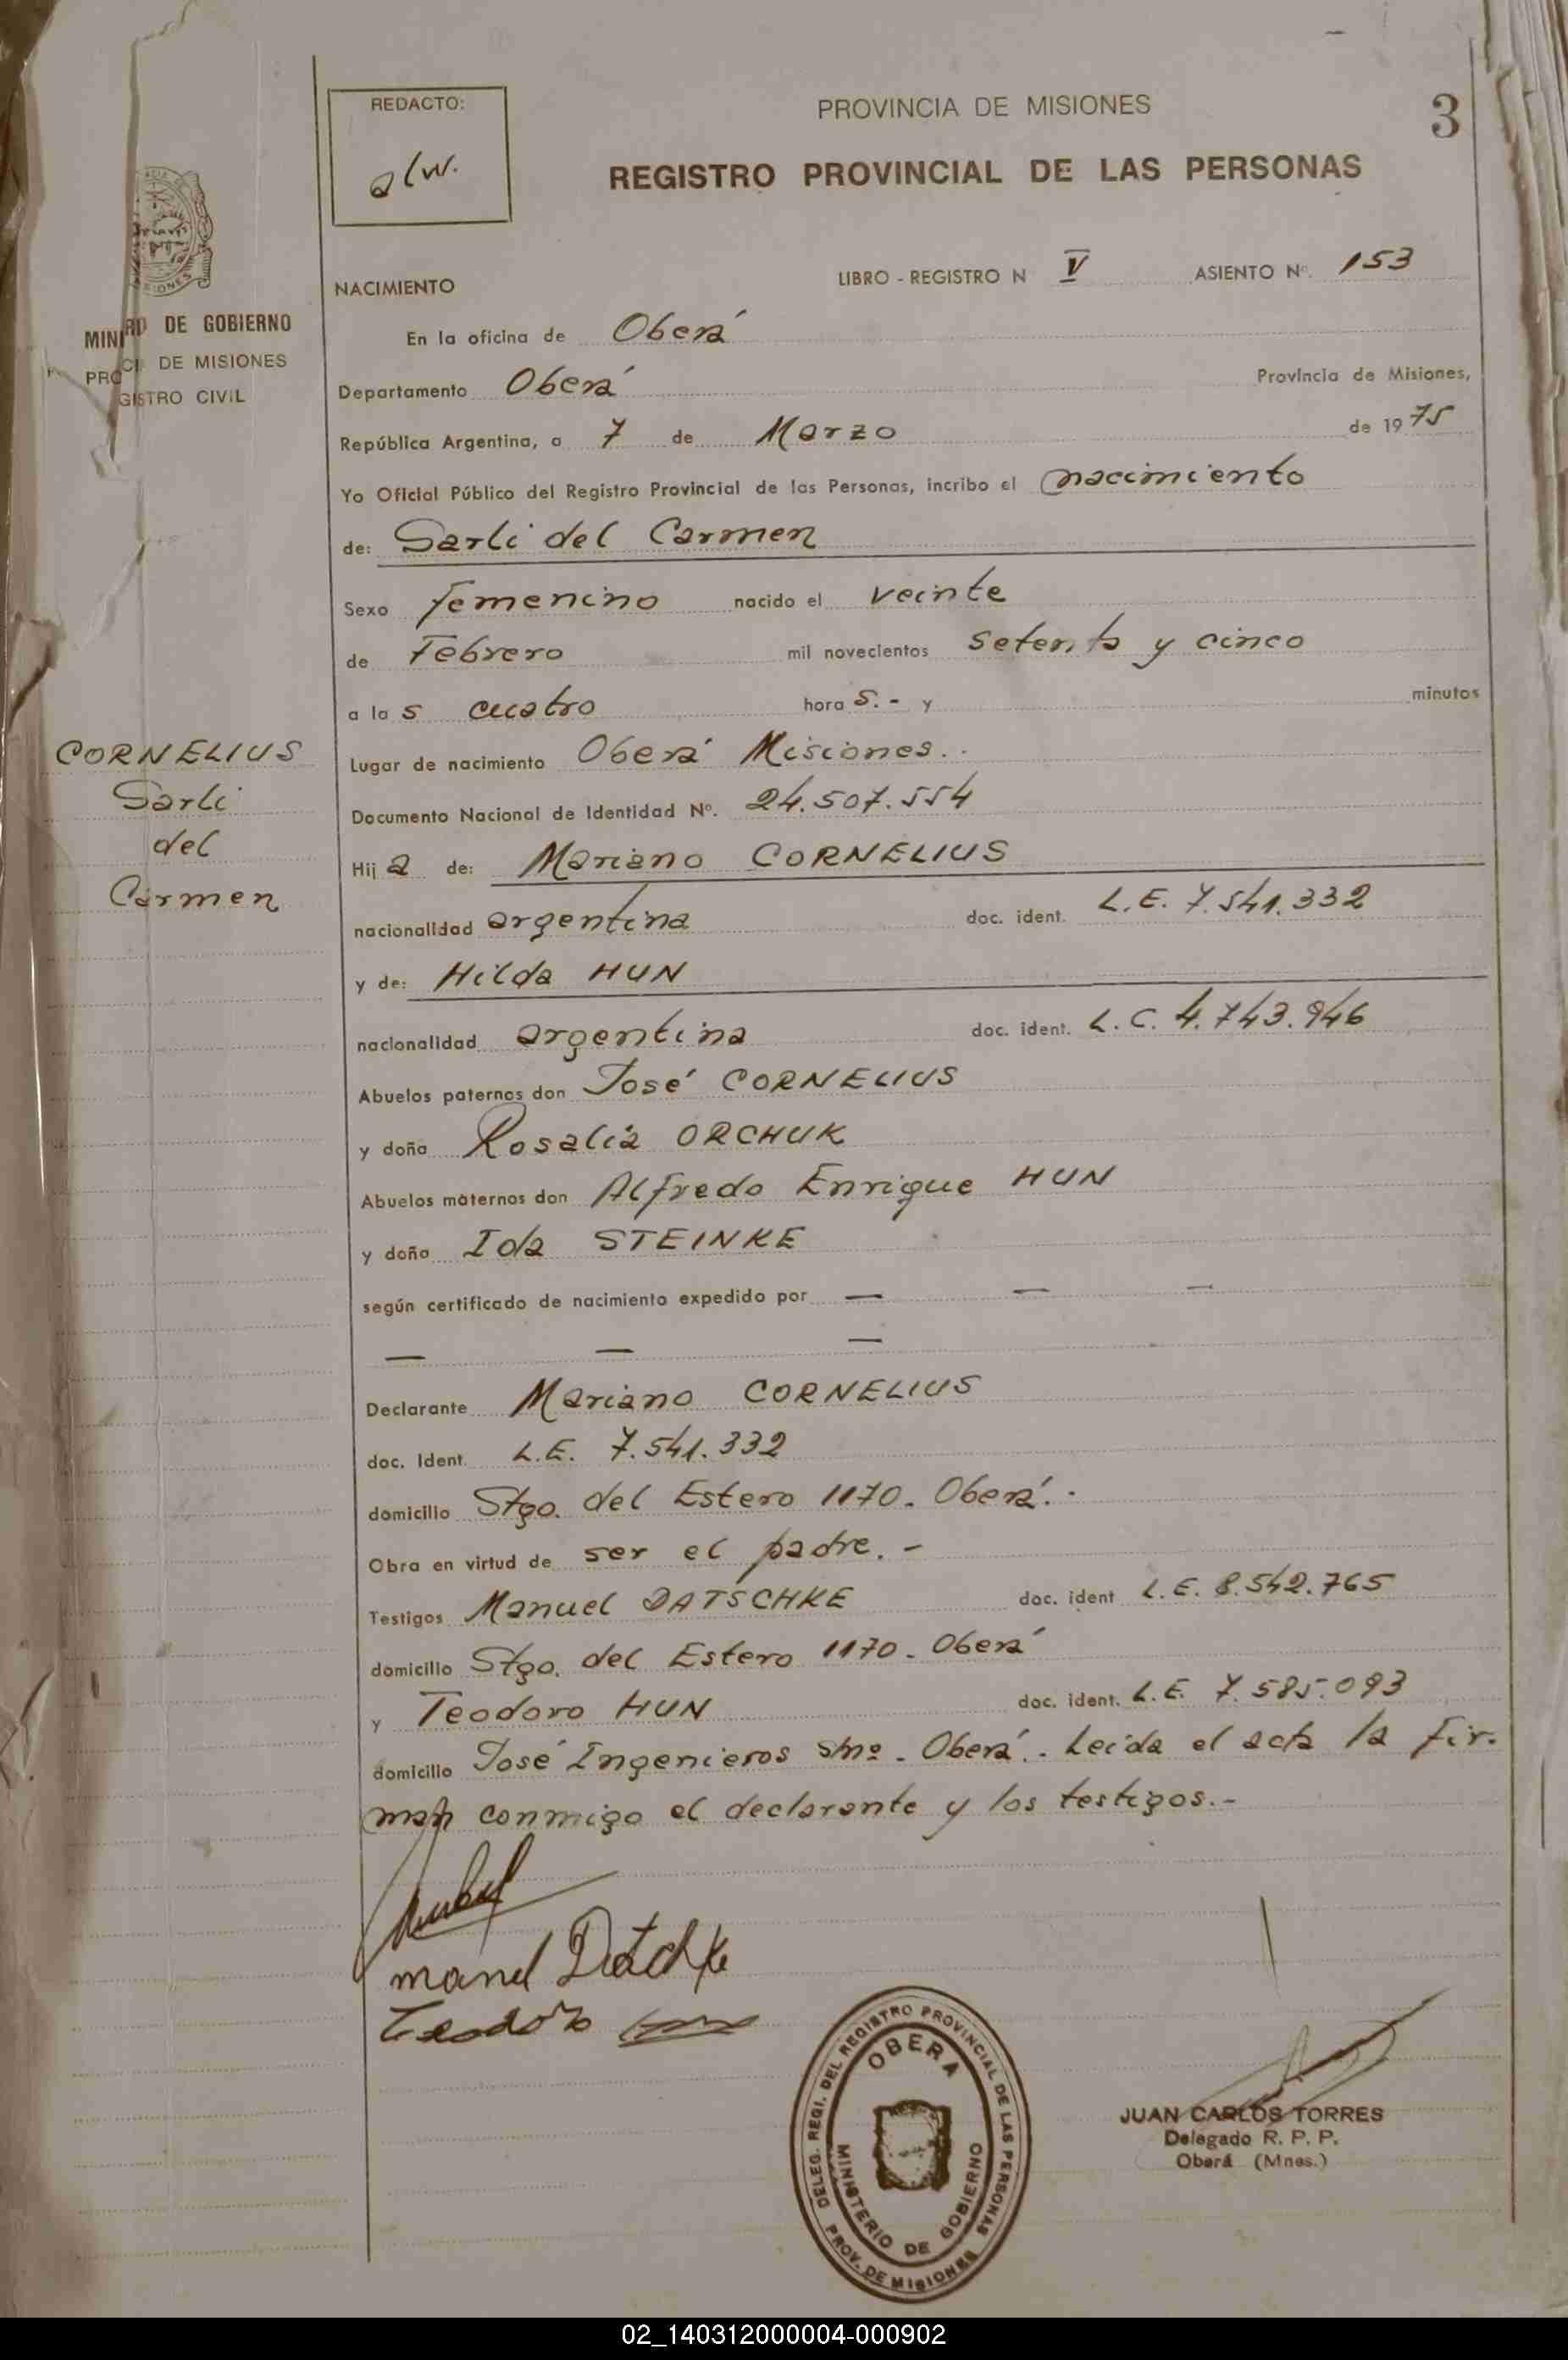 REDACTO:
PROVINCIA DE MISIONES
3
REGISTRO PROVINCIAL DE LAS PERSONAS
DE GOBIERNO
DE MISIONES
GISTRO CIVIL
NACIMIENTO
LIBRO - REGISTRO N V ASIENTO Nº. 153
En la oficina de Oberá
Departamento Oberá Provincia de Misiones,
República Argentina, a 7 de Marzo de 1975
Yo Oficial Público del Registro Provincial de las Personas, incribo el nacimiento
de: Sarli del Carmen
Sexo femenino nacido el veinte
de Febrero mil novecientos setenta y cinco
a las cuatro horas.- y minutos
Lugar de nacimiento Oberá Misiones.-
Documento Nacional de Identidad Nº. 24.507.554
CORNELIUS
Sarli
del
Carmen
Hija de: Mariano CORNELIUS
nacionalidad argentina doc. ident. L.E. 7.541.332
y de: Hilda HUN
nacionalidad argentina doc. ident. L.C. 4.743.946
Abuelos paternos don José CORNELIUS
y doña Rosalía ORCHUK
Abuelos maternos don Alfredo Enrique HUN
y doña Ida STEINKE
según certificado de nacimiento expedido por — — —
— — —
Declarante Mariano CORNELIUS
doc. Ident. L.E. 7.541.332
domicilio Stgo. del Estero 1170. Oberá.-
Obra en virtud de ser el padre.-
Testigos Manuel DATSCHKE doc. ident L.E. 8.542.765
domicilio Stgo. del Estero 1170. Oberá
y Teodoro HUN doc. ident. L.E. 7.585.093
domicilio José Ingenieros s/nº. Oberá.- Leída el acta la fir-
man conmigo el declarante y los testigos.-
Teodoro
DELEG. REGI. DEL REGISTRO PROVINCIAL DE LAS PERSONAS
OBERA
MINISTERIO DE GOBIERNO
PROV. DE MISIONES
JUAN CARLOS TORRES
Delegado R. P. P.
Oberá (Mnes.)
02_140312000004-000902